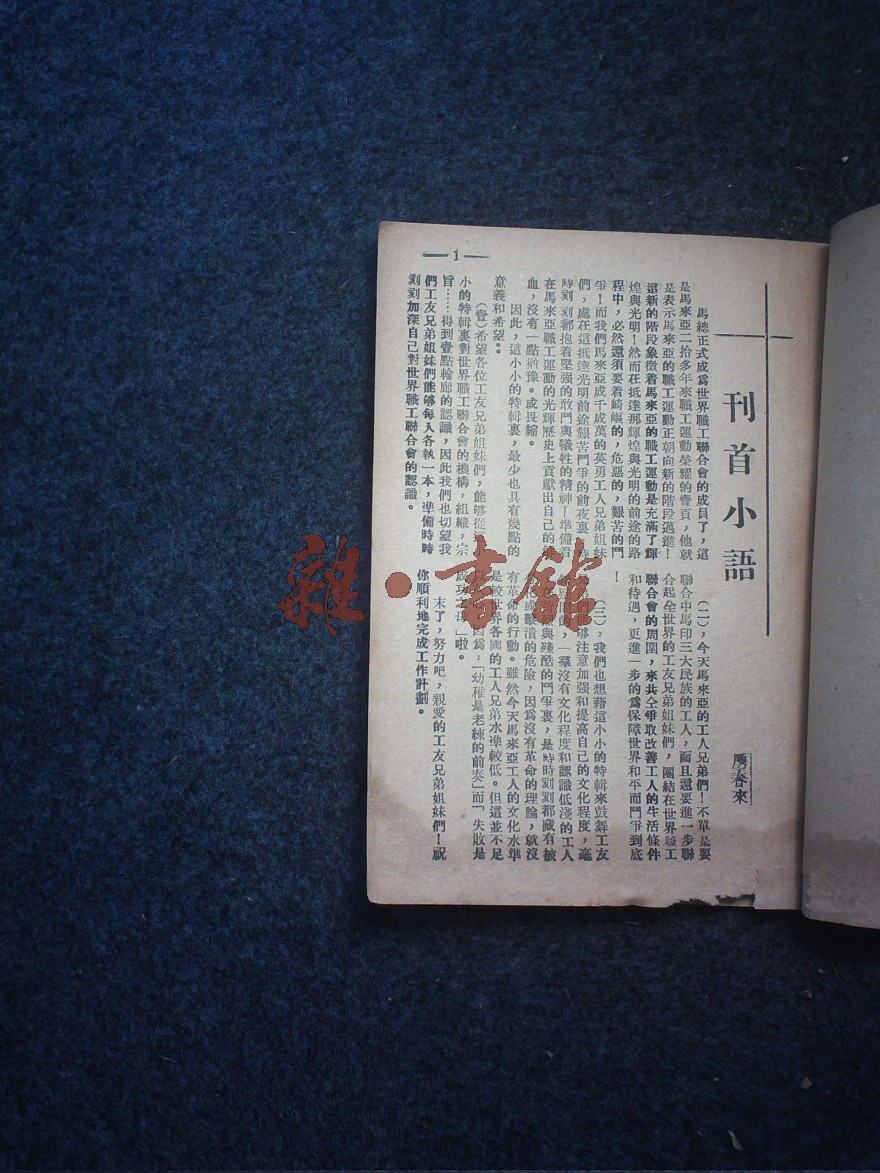 刊首小語
廖春來
馬總正式成爲世界職工聯合會的成員了,這
是馬來亞二拾多年來職工運動榮耀的壹頁,他就
是表示馬來亞的職工運動正朝向新的階段邁進!
這新的階段象徵着馬來亞的職工運動是充滿了輝
煌與光明!然而在抵達那輝煌與光明的前途的路
程中,必然還須要着崎嶇的,危惡的,艱苦的鬥
爭!而我們馬來亞成千成萬的英勇工人兄弟姐妹
們,處在這抵達光明前途艱苦鬥爭的前夜裏,時
時刻刻都抱着堅强的敢鬥與犧牲的精神!準備着
在馬來亞職工運動的光輝歷史上貢獻出自己的
血,沒有一點猶豫。或畏縮。
因此,這小小的特輯裏,最少也具有幾點的
意義和希望:。
(壹)希望各位工友兄弟姐妹們,能够從這小
小的特輯裏對世界職工聯合會的機構,組織,宗
旨……得到壹點輪廊的認識,因此我們也切望我
們工友兄弟姐妹們能够每人各執一本,準備時時
刻刻加深自己對世界職工聯合會的認識。
(二),今天馬來亞的工人兄弟們!不單是要
聯合中馬印三大民族的工人,而且還要進一步聯
合起全世界的工友兄弟姐妹們,團結在世界職工
聯合會的周圍,來共仝爭取改善工人的生活條件
和待遇,更進一步的爲保障世界和平而鬥爭到底
!
(三),我們也想藉這小小的特輯來鼓舞工友
們能够注意加强和提高自己的文化程度,毫
的,一羣沒有文化程度和認識低淺的工人
與殘酷的鬥爭裏,是時時刻刻都藏有被
或擊潰的危險,因爲沒有革命的理論,就沒
有革命的行動。雖然今天馬來亞工人的文化水準
是較世界各國的工人兄弟水準較低。但這並不足
因爲,「幼稚是老練的前奏」而「失敗是
成功之母」啦。
末了,努力吧,親愛的工友兄弟姐妹們!祝
你順利地完成工作計劃。
1
雜·書館